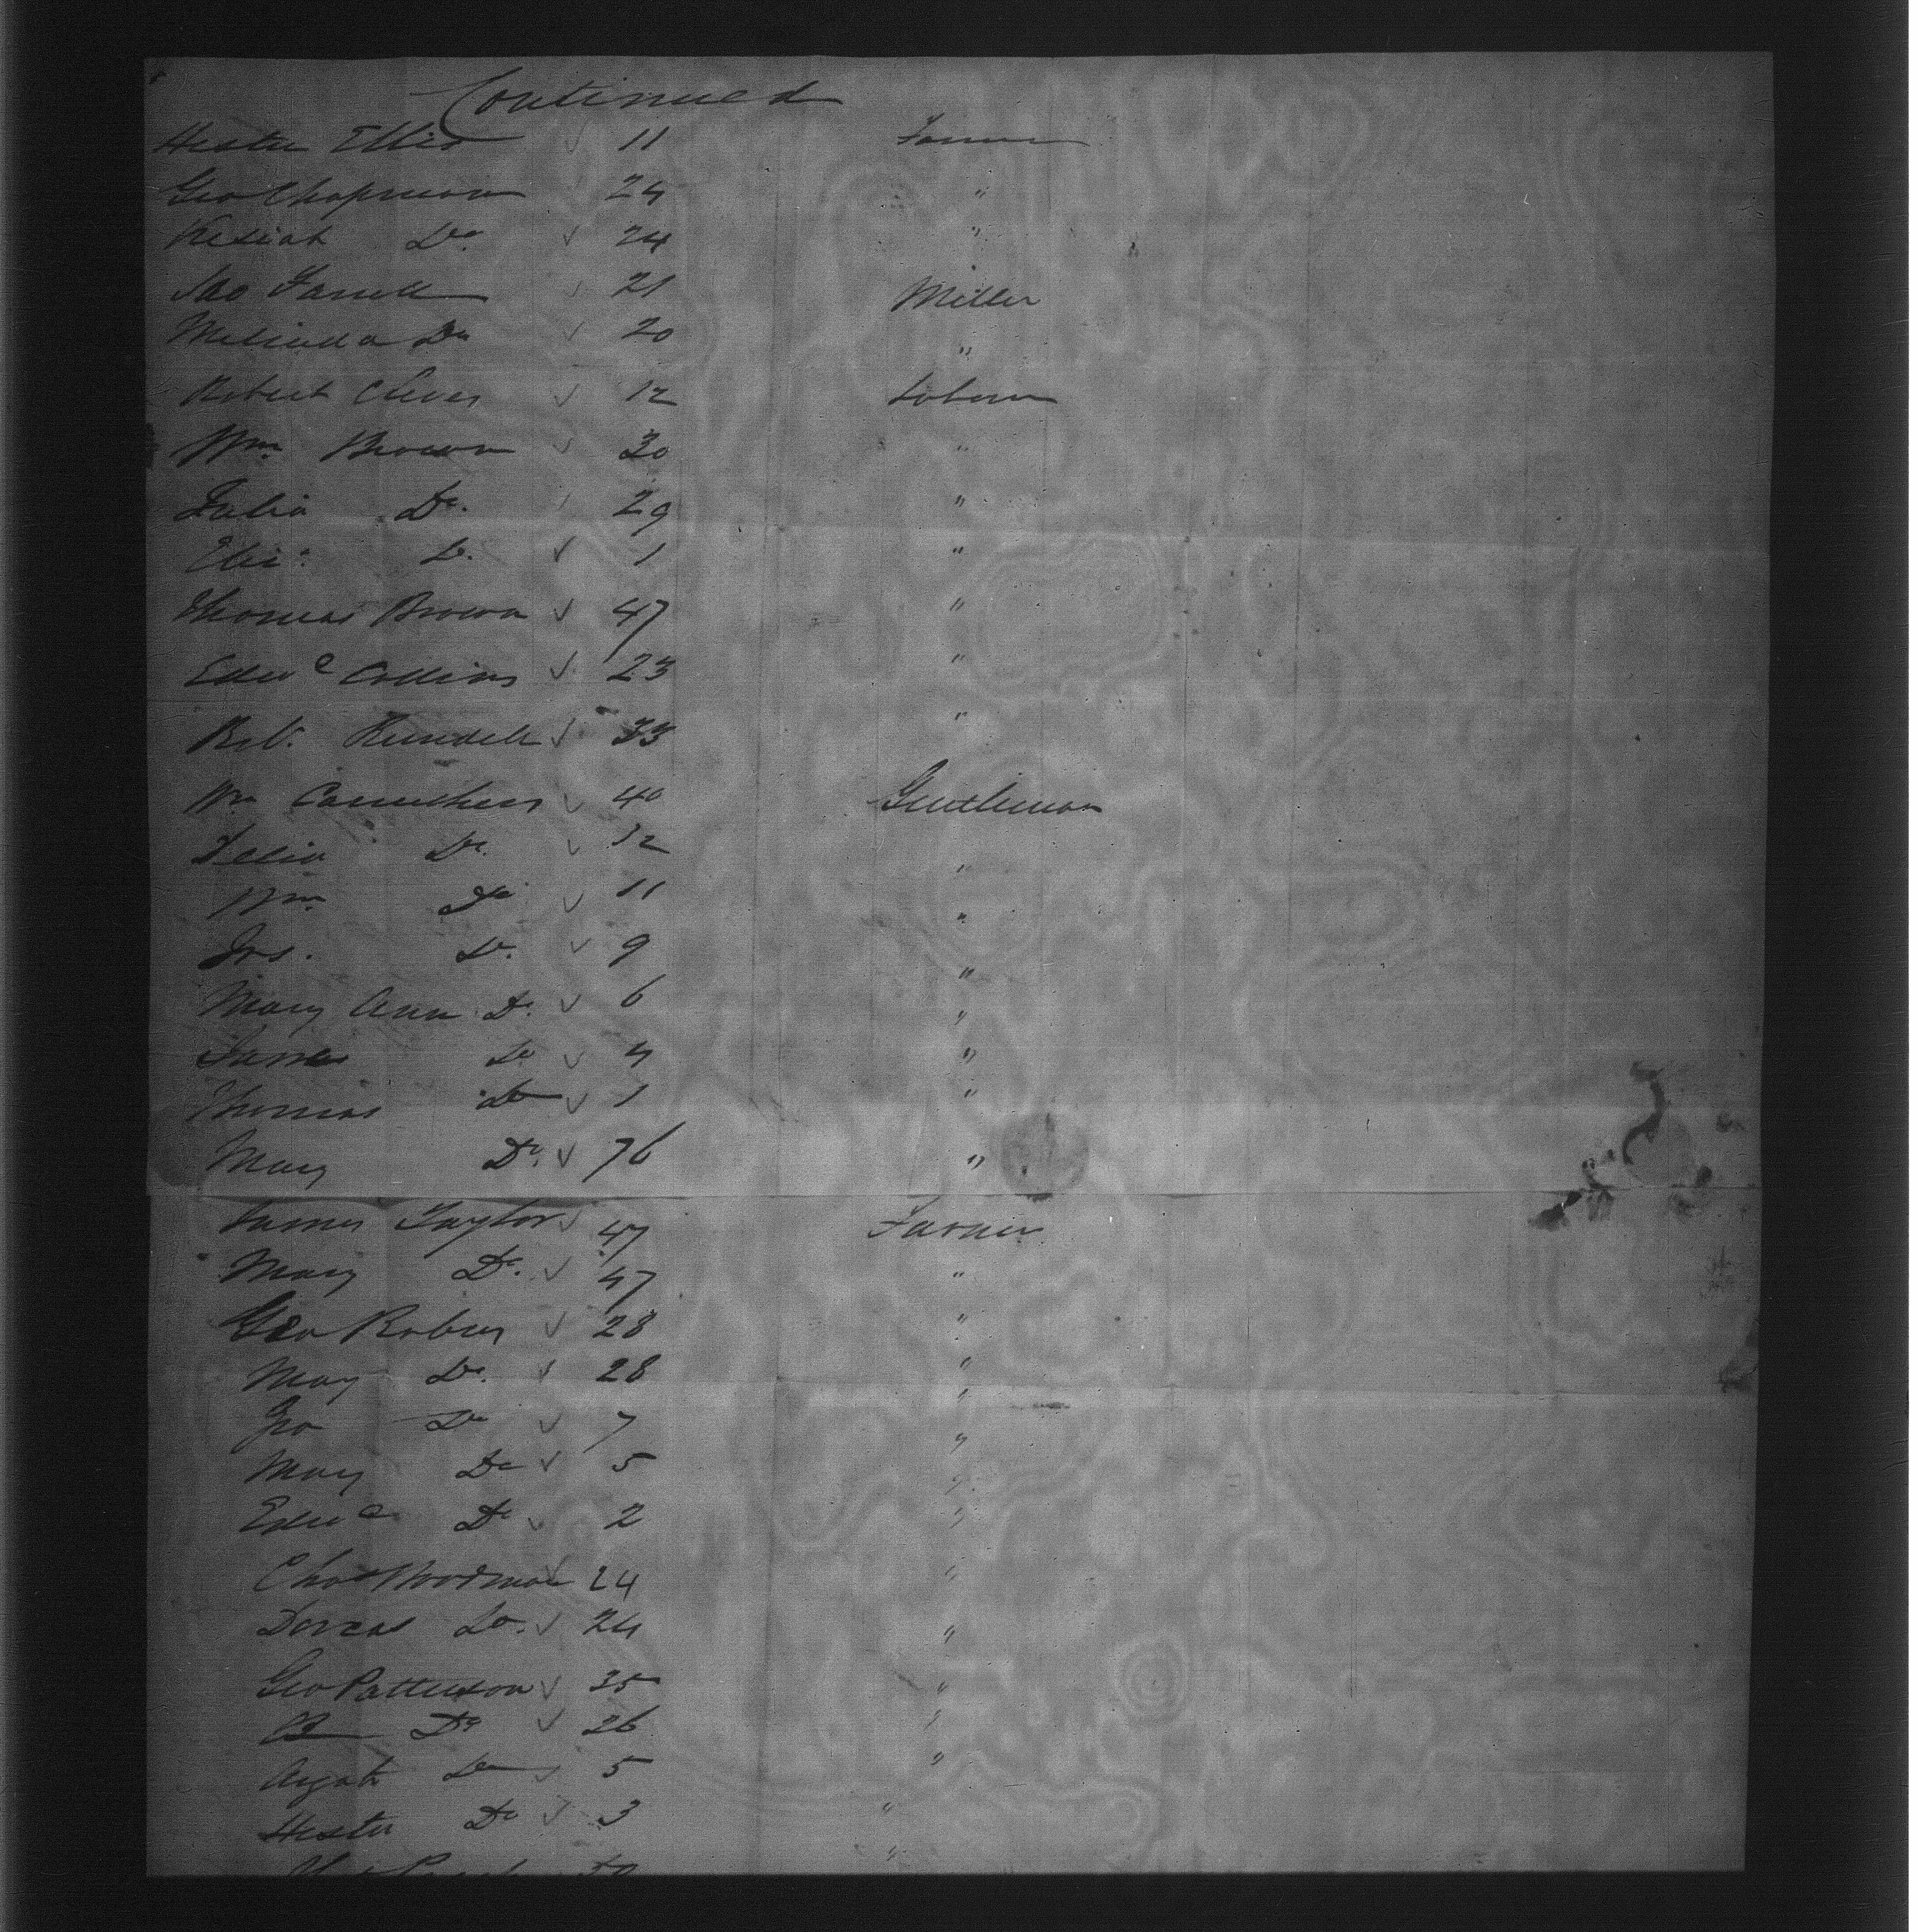 Continued
Hester Ellis ✓ 11 Farmer
Geo Chapman 24 "
Kesiah Do. ✓ 24 "
Jno Farrell ✓ 21 Miller
Melinda Do ✓ 20 "
Robert ✓ 12
Wm. Brown ✓ 30 "
Julia Do. 29 "
Eliz. Do. ✓ 1 "
Thomas Brown ✓ 47 "
Edwd Collins ✓ 23 "
✓ 33 "
Wm Carruthers ✓ 40 Gentleman
Do. ✓ 12 "
Wm. Do ✓ 11 "
Jos. Do. ✓ 9 "
Mary Ann Do. ✓ 6 "
James Do ✓ 4 "
Thomas Do ✓ 1 "
Mary Do. ✓ 76 "
James Taylor ✓ 47 Farmer
Mary Do. ✓ 47 "
Geo ✓ 28 "
Mary Do. ✓ 28 "
Jno Do ✓ 7 "
Mary Do ✓ 5 "
Edwd Do ✓ 2 "
Chas Woodman ✓ 24 "
Dorcas Do. ✓ 24 "
Geo Patterson ✓ 35 "
Do ✓ 26 "
Do ✓ 5 "
Hester Do ✓ 3 "